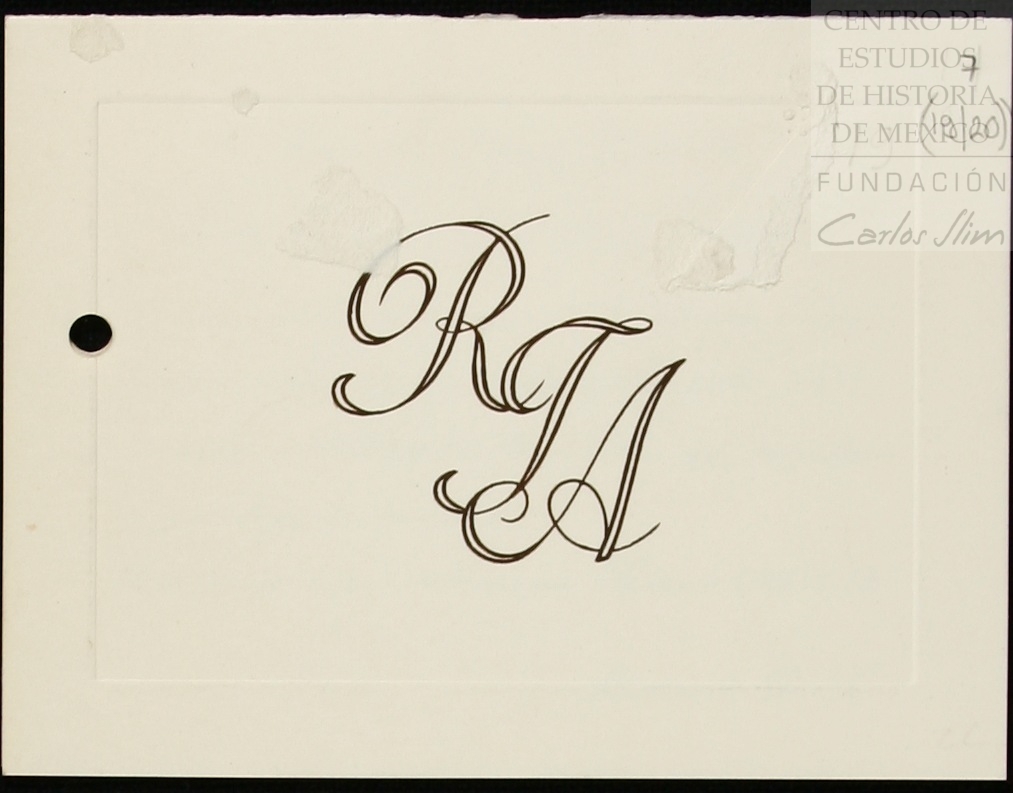 CENTRO DE
ESTUDIOS
7
DE HISTORIA
DE MEXICO
(19/20)
FUNDACIÓN
Carlos Slim
RTA